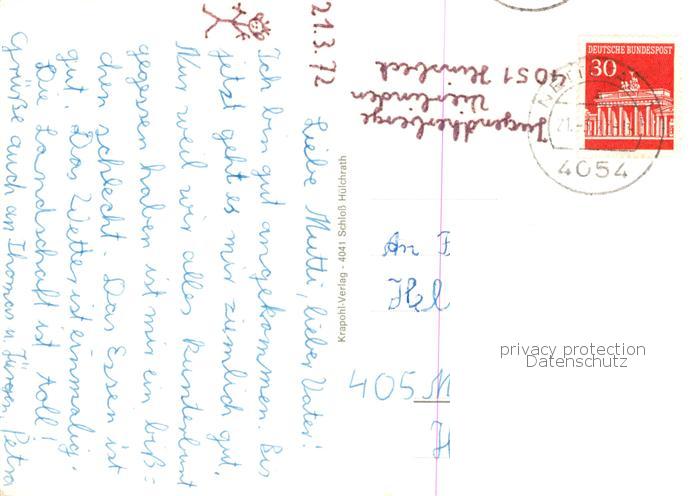 21.3.72
Liebe Mutti, lieber Vater!
Ich bin gut angekommen. Bis
jetzt geht es mir ziemlich gut.
Nur weil wir alles kunterbunt
gegessen haben ist mir ein biß=
chen schlecht. Das Essen ist
gut. Das Wetter ist einmalig.
Die Landschaft ist toll!
Grüße auch an Thomas u. Jürgen, Petra
Krapohl-Verlag - 4041 Schloß Hülchrath
Jugendherberge
Vierlinden
4051 Hinsbeck
DEUTSCHE BUNDESPOST
30
4054
An
Hel
405 M
H
privacy protection
Datenschutz